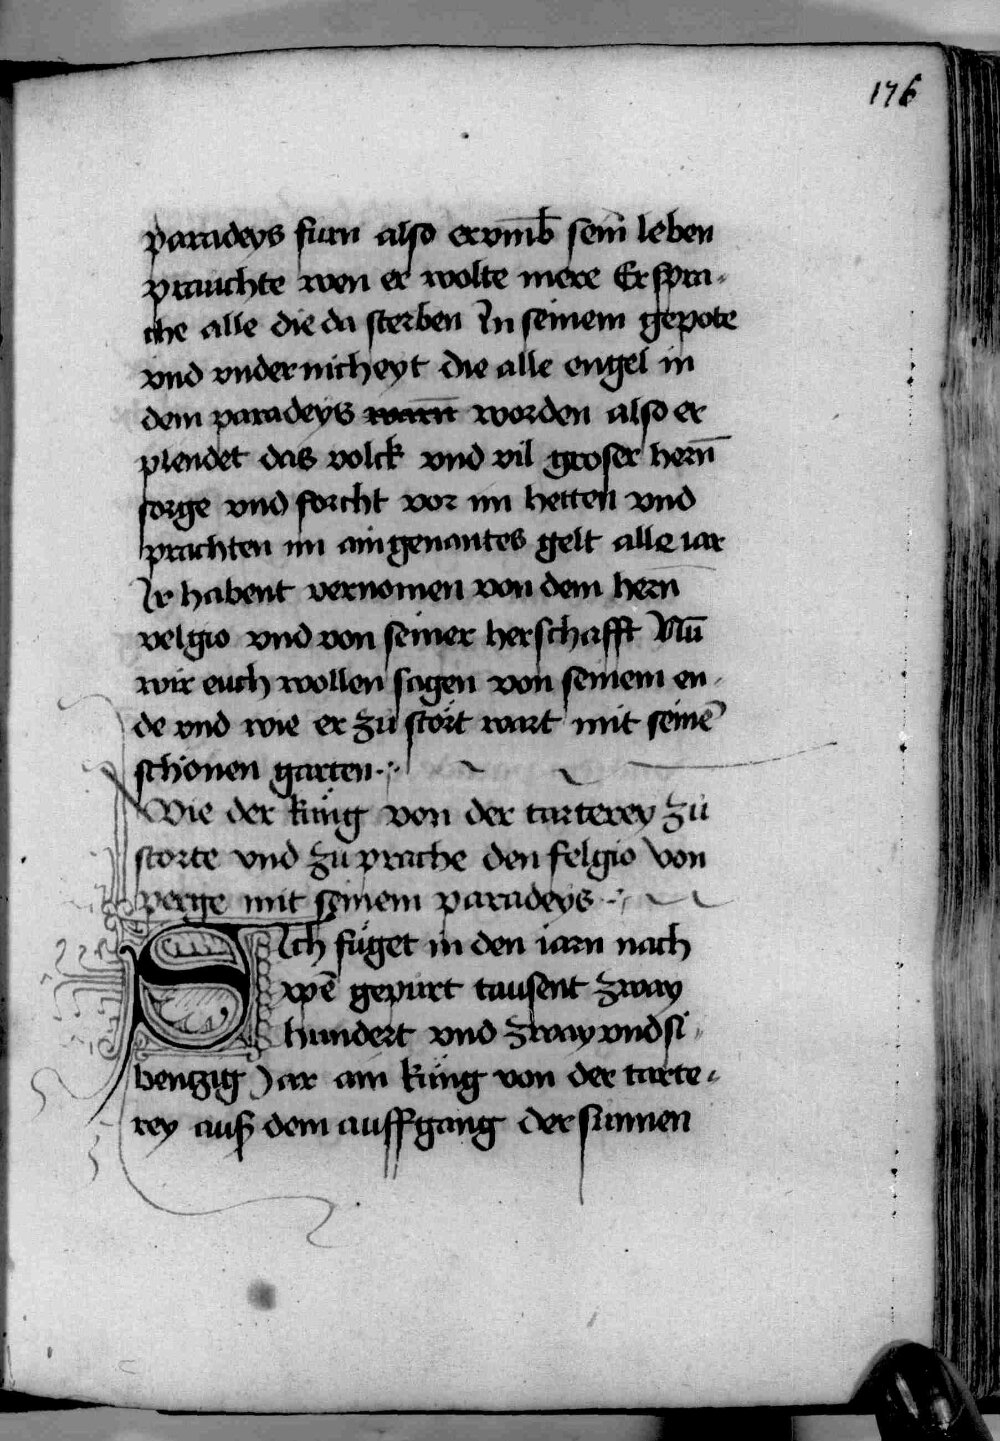 176
paradeys furn also er vmb sein leben
prauchte wen er wolte mere Er spra-
che alle die da sterben In seinem gepote
vnd vndernicheyt die alle engel in
dem paradeys warn worden also er
plendet das volck vnd vil groser hern̄
sorge vnd forcht vor im hetten vnd
prachten im aingenantes gelt alle iar
Ir habent vernomen von dem hern̄
velgio vnd von seiner herschafft Nū
wir euch wollen sagen von seinem en-
de vnd wie er zu stört wart mit seinē
schonen garten
Wie der küng von der tarterey zu
storte vnd zu prache den felgio von
perge mit seinem paradeys
Sich füget in den iarn nach
xpē gepurt tausent zway
hundert vnd zway vnd si-
bentzig Jar ain küng von der tarte-
rey auß dem auffgang der sunnen